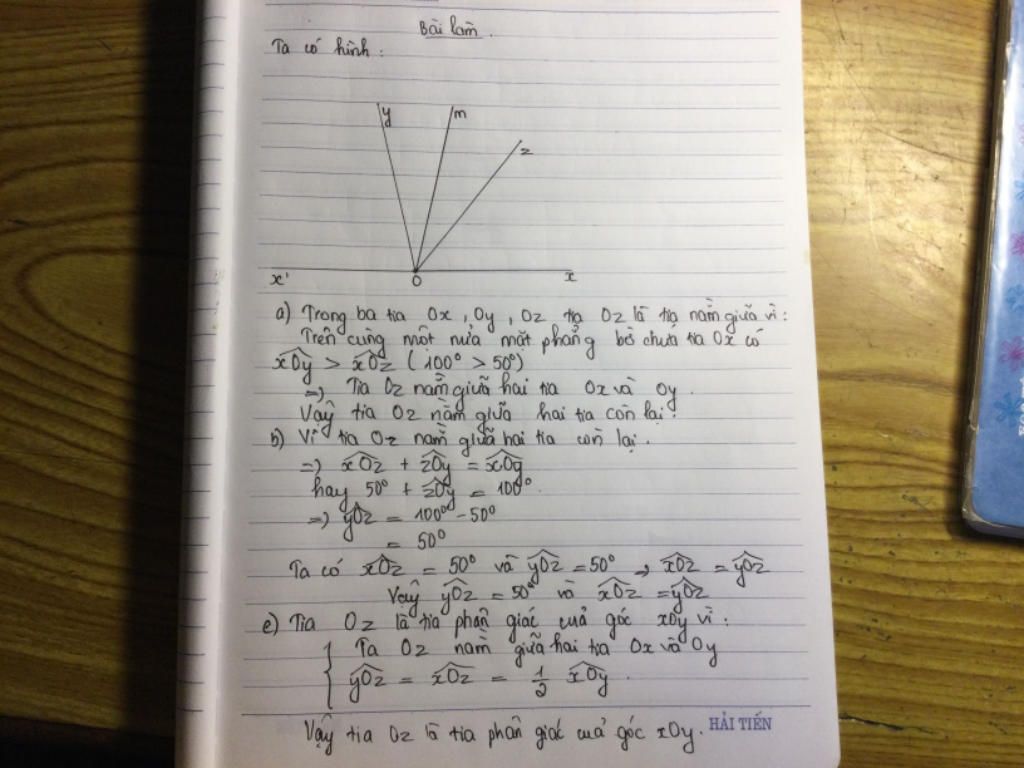 Bài làm.
Ta có hình:
y m
z
x' O x
a) Trong ba tia Ox, Oy, Oz tia Oz là tia nằm giữa vì:
Trên cùng một nửa mặt phẳng bờ chứa tia Ox có
xÔy > xÔz (100° > 50°)
=> Tia Oz nằm giữa hai tia Ox và Oy.
Vậy tia Oz nằm giữa hai tia còn lại.
b) Vì tia Oz nằm giữa hai tia còn lại.
=> xÔz + zÔy = xÔy
hay 50° + zÔy = 100°.
=> yÔz = 100° - 50°
= 50°
Ta có xÔz = 50° và yÔz = 50° → xÔz = yÔz
Vậy yÔz = 50° và xÔz = yÔz
c) Tia Oz là tia phân giác của góc xOy vì:
{ Ta Oz nằm giữa hai tia Ox và Oy
yÔz = xÔz = 1/2 xÔy.
Vậy tia Oz là tia phân giác của góc xOy.
HẢI TIẾN